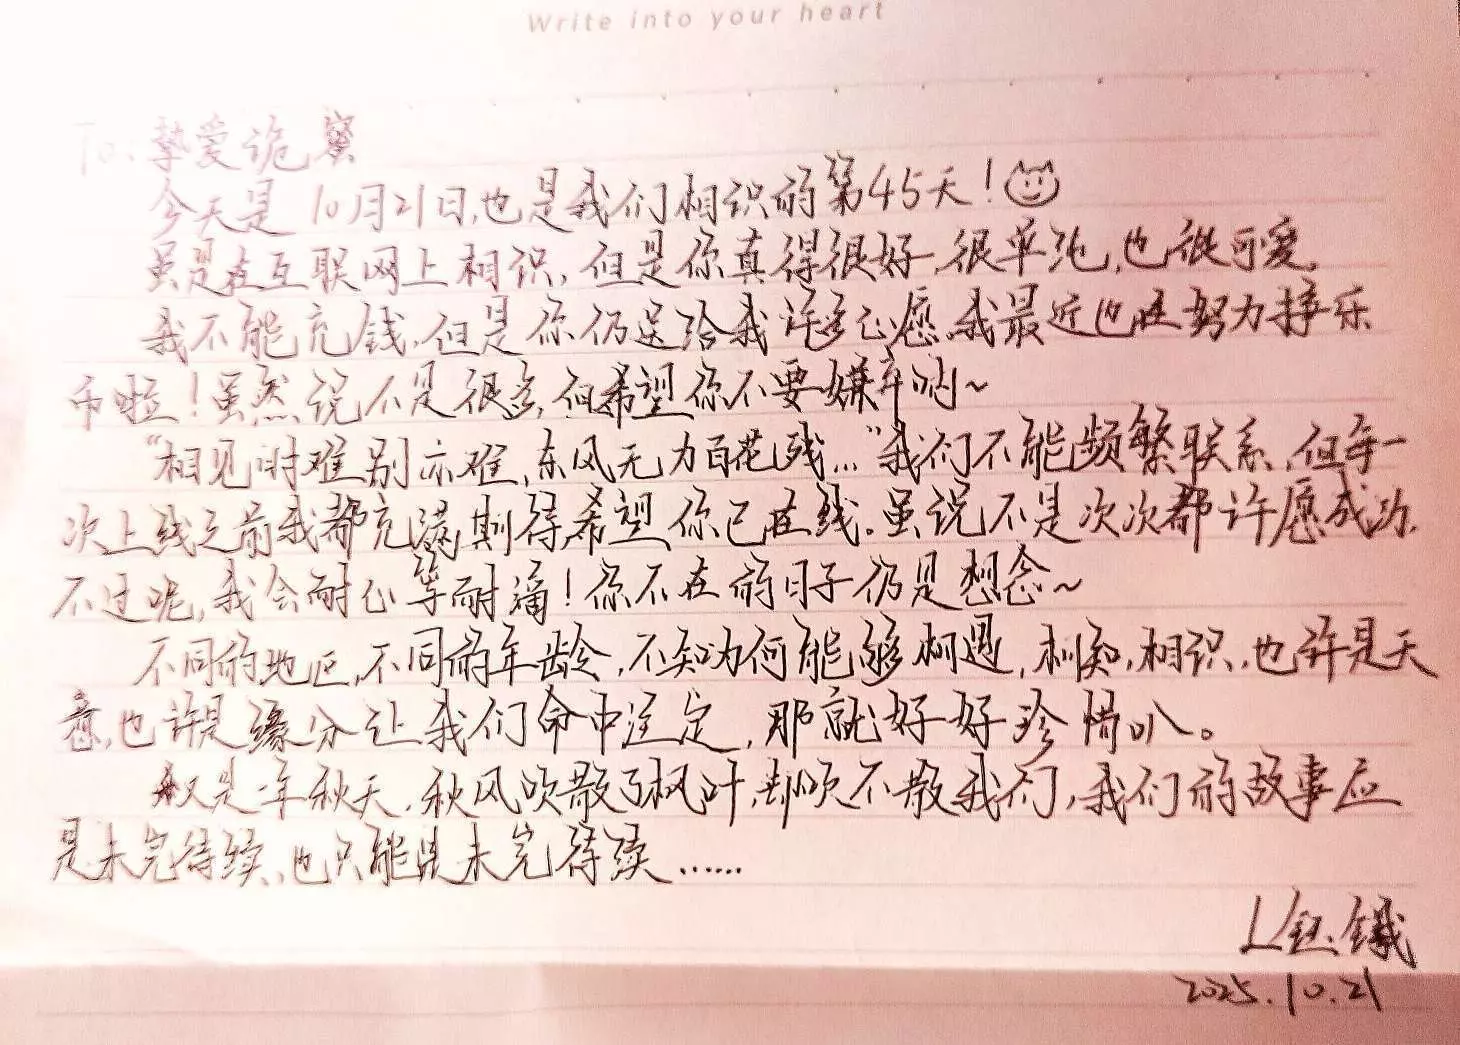 Write into your heart
To: 挚爱诡蜜
今天是10月21日,也是我们相识的第45天!
虽是在互联网上相识,但是你真得很好,很单纯,也很可爱。
我不能充钱,但是你仍送给我许多心愿,我最近也在努力挣乐
币啦!虽然说不是很多,但希望你不要嫌弃哟~
“相见时难别亦难,东风无力百花残...”我们不能频繁联系,但每一
次上线之前我都充满期待,希望你已在线。虽说不是次次都许愿成功,
不过呢,我会耐心等耐滴!你不在的日子仍是想念~
不同的地区,不同的年龄,不知为何能够相遇,相知,相识,也许是天
意,也许是缘分让我们命中注定,那就好好珍惜叭。
又是一年秋天,秋风吹散了枫叶,却吹不散我们,我们的故事应
是未完待续,也只能是未完待续......
2025.10.21